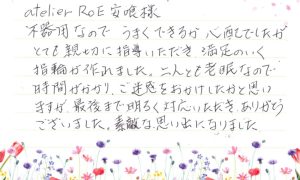 atelier RoE 安喰様
不器用なので うまくできるか 心配でしたが
とても親切に指導いただき 満足のいく
指輪が作れました。二人とも老眼なので
時間がかかり、ご迷惑をおかけしたかと思い
ますが 最後まで明るく対応いただき ありがとう
ございました。素敵な思い出になりました